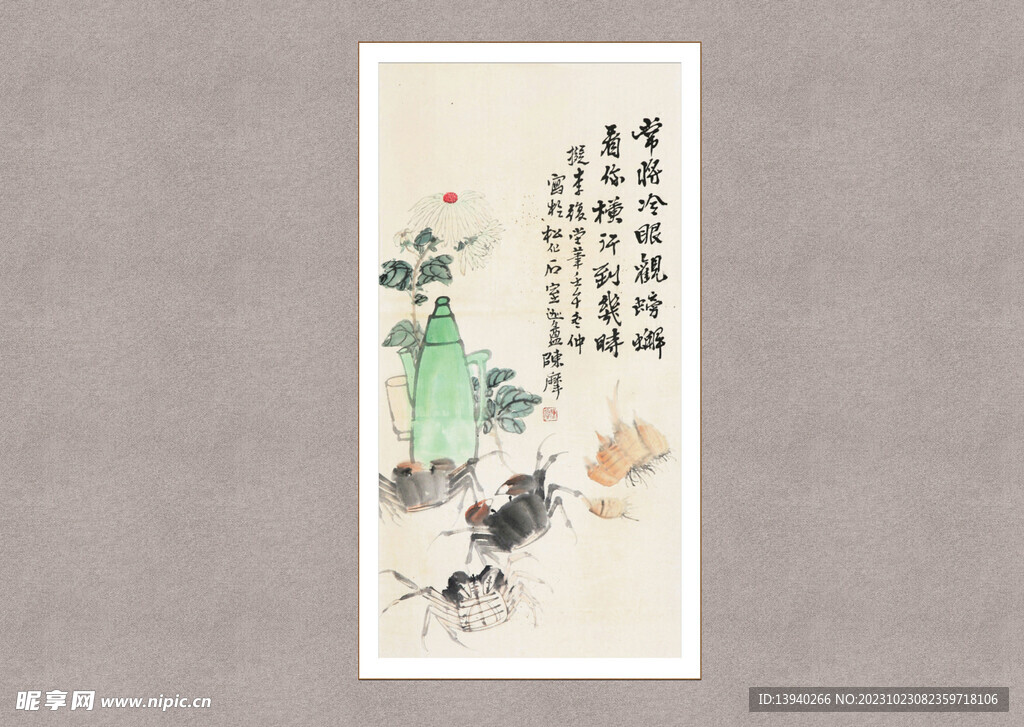 常將冷眼觀螃蠏
看你橫行到幾時
擬李復堂筆壬午冬仲
寫於松化石室迦盦陳摩
昵享网 www.nipic.cn
ID:13940266 NO:20231023082359718106